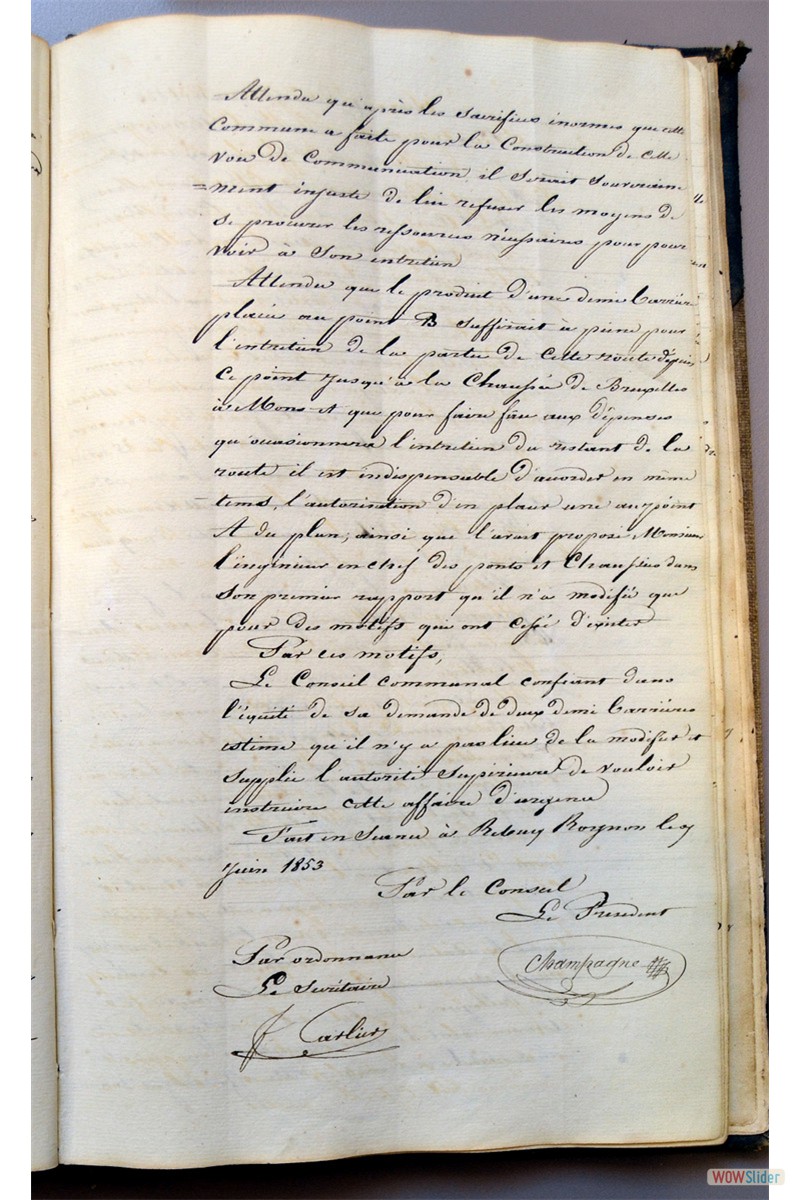 Attendu qu'après les sacrifices inormes que cette
commune a faite pour la Construction de cette
voie de Communication, il serait souveraine
=ment injuste de lui refuser les moyens de
se procurer les ressources nécessaires pour pour
voir à son entretien
Attendu que le produit d'une demi barrière
placée au point B suffirait à peine pour
l'entretien de la partie de cette route depuis
ce point jusqu'à la Chaussée de Bruxelles
à Mons et que pour faire face aux dépenses
qu'occasionnera l'entretien du restant de la
route il est indispensable d'accorder en même
tems, l'autorisation d'en placer une au point
A du plan, ainsi que l'avait proposé Monsieur
l'ingénieur en chef des ponts et Chaussées dans
son premier rapport qu'il n'a modifié que
pour des motifs qui ont cessé d'exister
Par ces motifs,
Le Conseil communal confiant dans
l'équité de sa demande de deux demi barrières
estime qu'il n'y a pas lieu de la modifier et
supplie l'autorité Supérieure de vouloir
instruire cette affaire d'urgence
Fait en Seance à Rebecq Rognon le 9
Juin 1853
Par le Conseil
Le President
Par ordonnance
Champagne
Le Secrétaire
J Carlier
WOWSlider